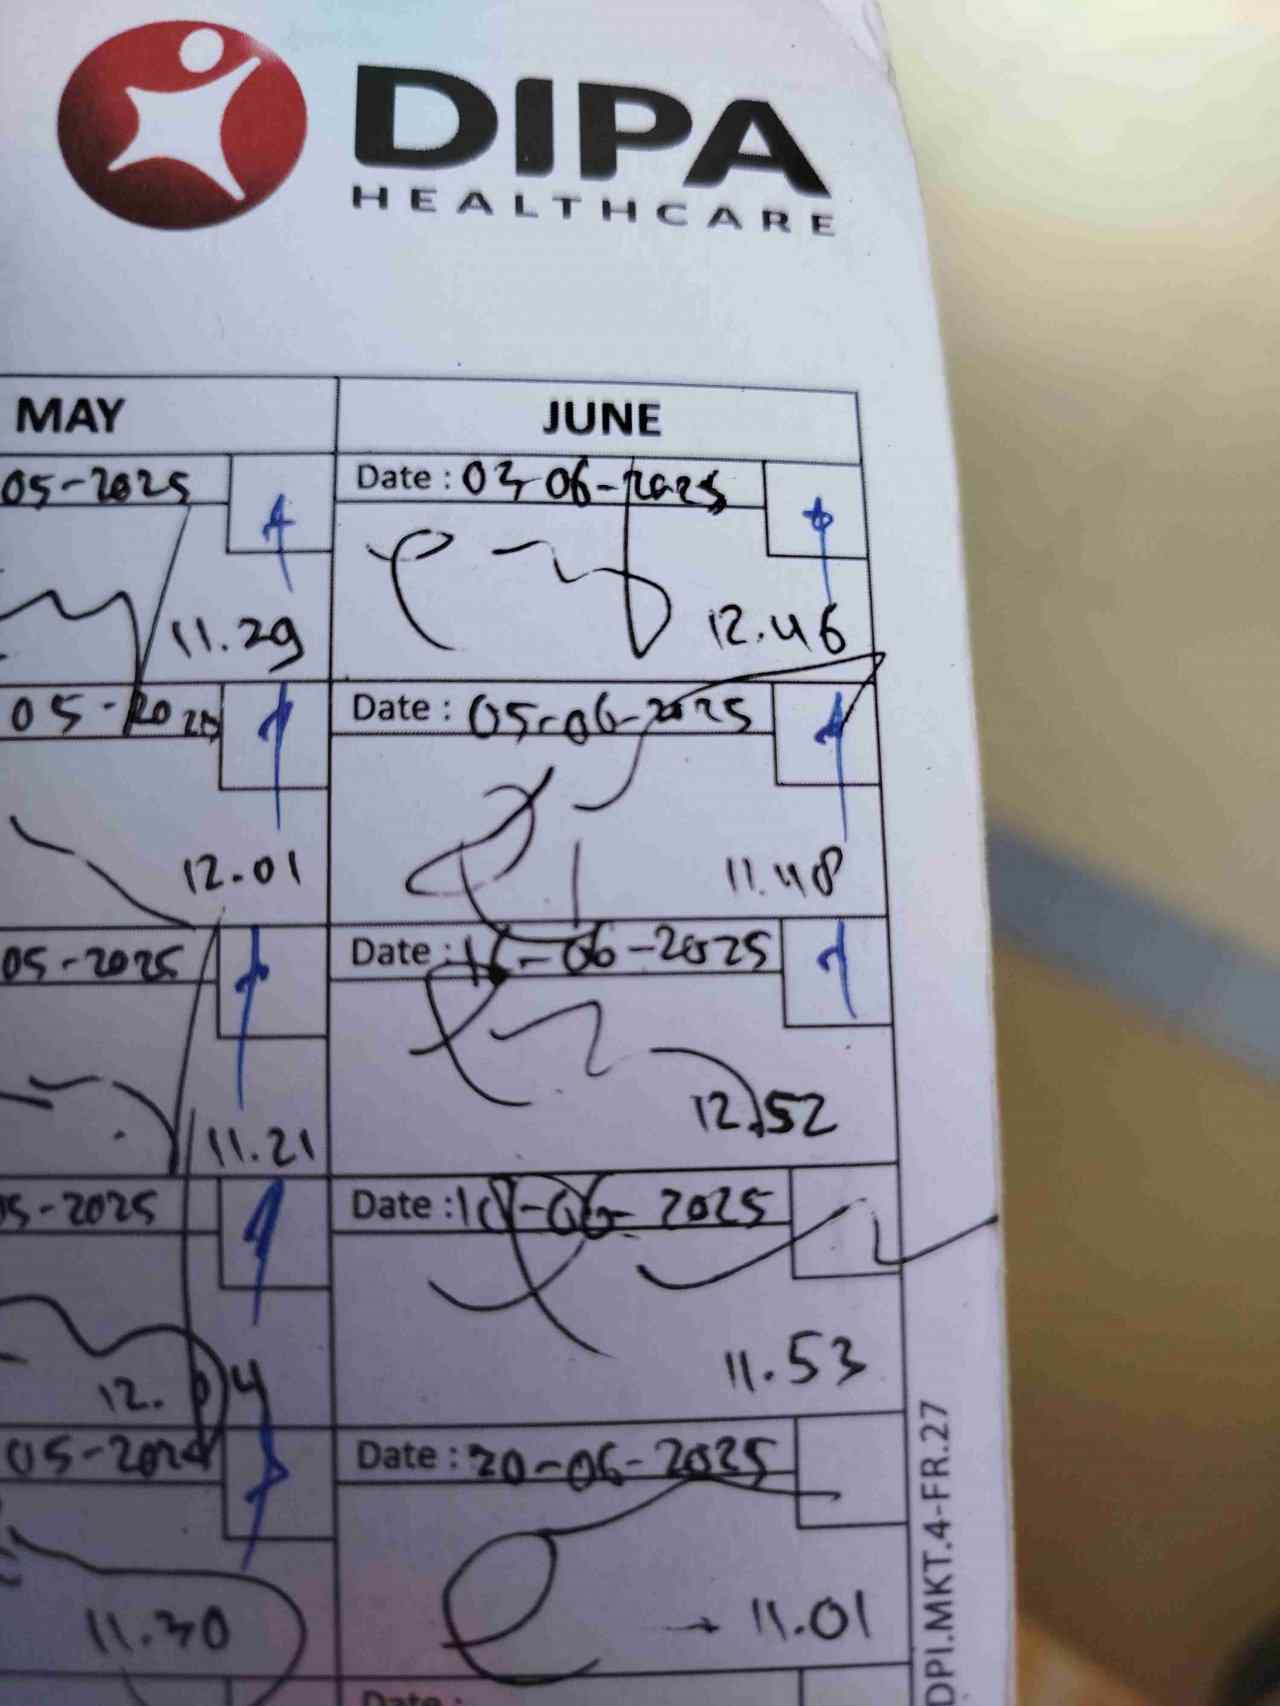 DIPA
HEALTHCARE
MAY
JUNE
05-2025
Date : 03-06-2025
11.29
12.46
05-2025
Date : 05-06-2025
12.01
11.48
05-2025
Date : -06-2025
11.21
12.52
05-2025
Date : 18-06-2025
12.04
11.53
05-2025
Date : 20-06-2025
11.30
11.01
Date :
DPI.MKT.4-FR.27